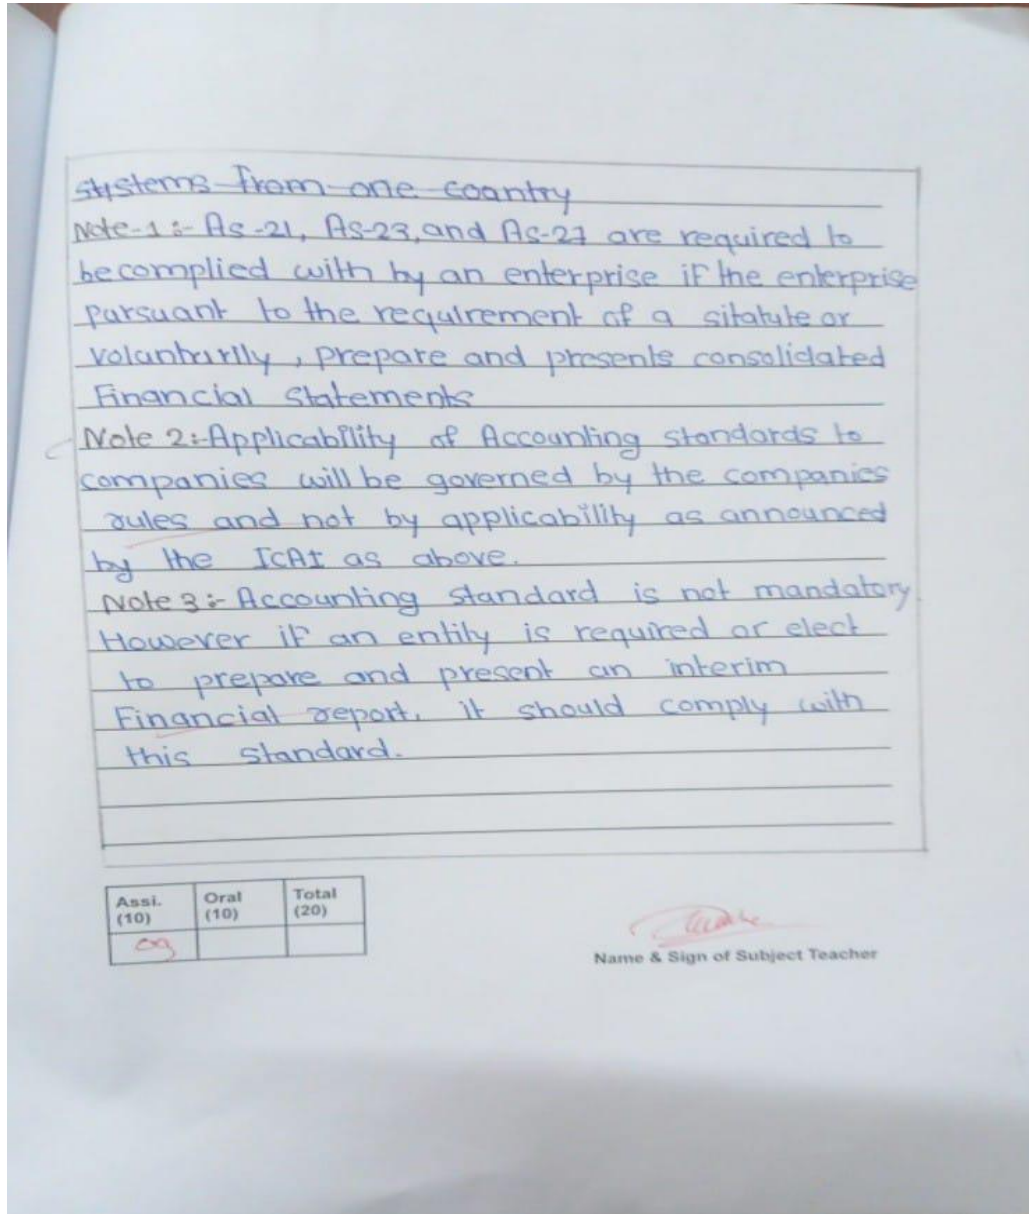 systems from one coantry
Note-1:- As-21, AS-23, and As-27 are required to
be complied with by an enterprise if the enterprise
parsuant to the requirement of a sitatute or
volunturilly, prepare and presents consolidated
Financial statements
Note 2:- Applicability of Accounting standards to
companies will be governed by the companies
rules and not by applicability as announced
by the ICAI as above.
Note 3:- Accounting standard is not mandatory
However if an entity is required or elect
to prepare and present an interim
Financial report, it should comply with
this standard.
Assi. (10) Oral (10) Total (20)
09
Name & Sign of Subject Teacher